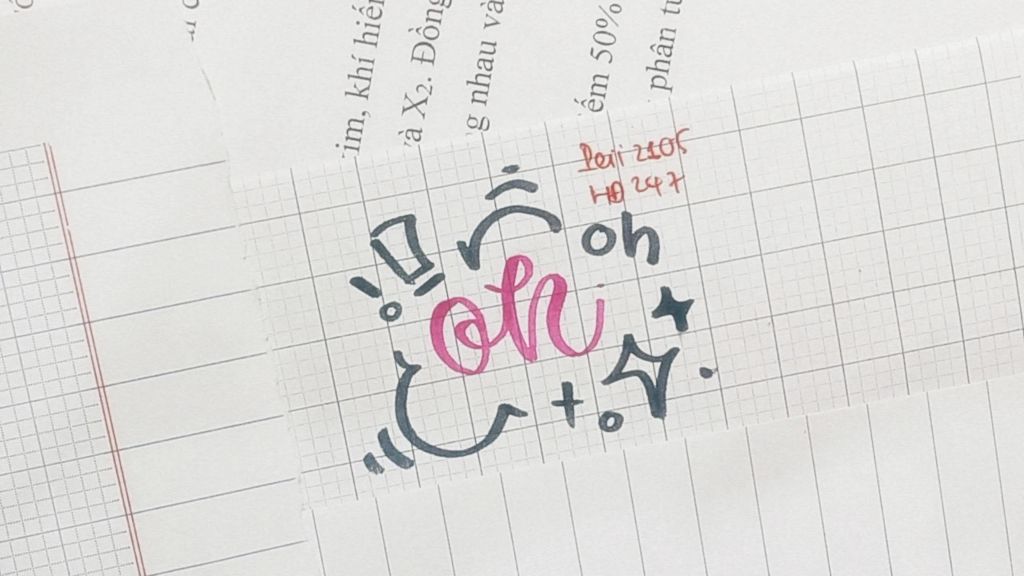 im, khí hiến
và X₂. Đồng
g nhau và
ếm 50%
phân tu
Peii 2105
HD 247
oh
oh